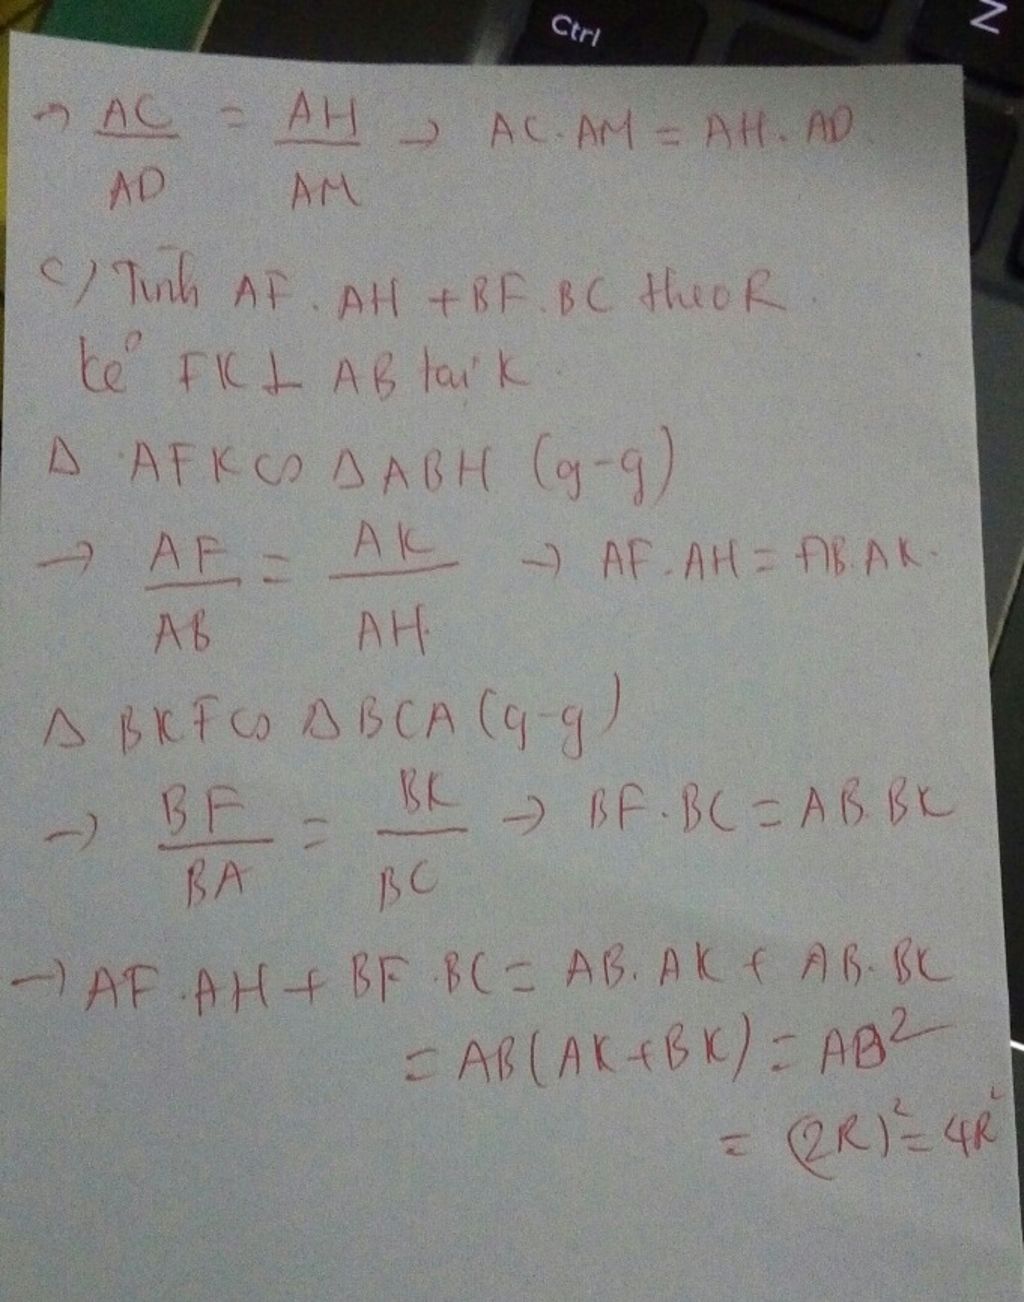 Ctrl
Z
→ AC/AD = AH/AM → AC.AM = AH.AD.
c) Tính AF.AH + BF.BC theo R.
kẻ FK ⊥ AB tại K.
Δ AFK ∽ Δ ABH (g-g)
→ AF/AB = AK/AH → AF.AH = AB.AK.
Δ BKF ∽ Δ BCA (g-g)
→ BF/BA = BK/BC → BF.BC = AB.BK
→ AF.AH + BF.BC = AB.AK + AB.BK
= AB(AK + BK) = AB²
= (2R)² = 4R²